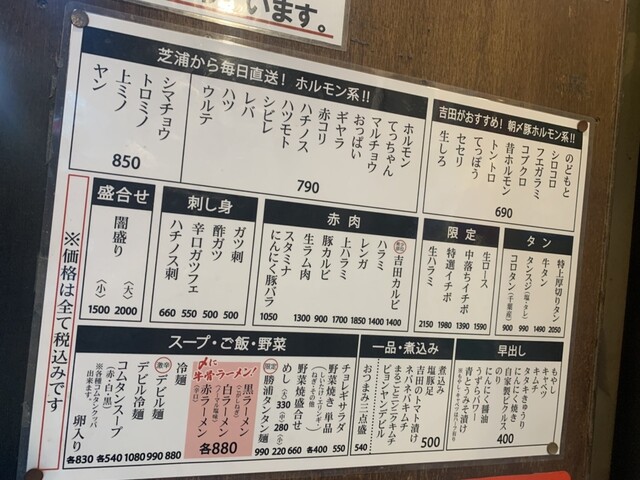 います。
芝浦から毎日直送！ホルモン系!!
ホルモン
てっちゃん
マルチョウ
おっぱい
ギヤラ
赤コリ
ハチノス
ハツモト
シビレ
レバ
ハツ
ウルテ
790
シマチョウ
トロミノ
上ミノ
ヤン
850
吉田がおすすめ！朝〆豚ホルモン系!!
のどもと
シロコロ
フエガラミ
コブクロ
昔ホルモン
トントロ
てっぽう
セセリ
生しろ
690
盛合せ
闇盛り
(大) 2000
(小) 1500
刺し身
ガツ刺 500
酢ガツ 500
辛口ガツフェ 550
ハチノス刺 660
赤肉
吉田カルビ 1400
ハラミ 1400
レンガ 1850
上ハラミ 1700
豚カルビ 900
生ラム肉 1300
スタミナ
にんにく豚バラ 1050
限定
生ロース 1590
中落ちカルビ 1390
特選イチボ 1980
生ハラミ 2150
タン
特上厚切りタン 2050
牛タン 1490
タンスジ(塩・タレ) 990
コロタン(千葉産) 900
※価格は全て税込みです
スープ・ご飯・野菜
チョレギサラダ 550
野菜焼き 単品 各400
(しいたけ・エリンギ・
ねぎ・その他)
野菜焼盛合せ 660
めし (大)330 (中)280 (小)220
限定 勝浦タンタン麺 990
〆に牛骨ラーメン！
黒ラーメン
白ラーメン
赤ラーメン
(辛口)
各880
冷麺 880
激辛 デビル麺 990
デビル冷麺 1080
コムタンスープ
(赤・白・黒) 各540
※各種コムタンクッパ
出来ます。
卵入り 各830
一品・煮込み
煮込み
塩豚足
吉田のトマト漬け
ネバネバキムチ
まるごとニラキムチ
ビョンヤンデビル
おつまみ三点盛
500
早出し
もやし
キャベツ
キムチ
タタキきゅうり
自家製ピクルス
にんにく焼き
にんにく醤油
うずらパワー
青とうみそ漬け
400